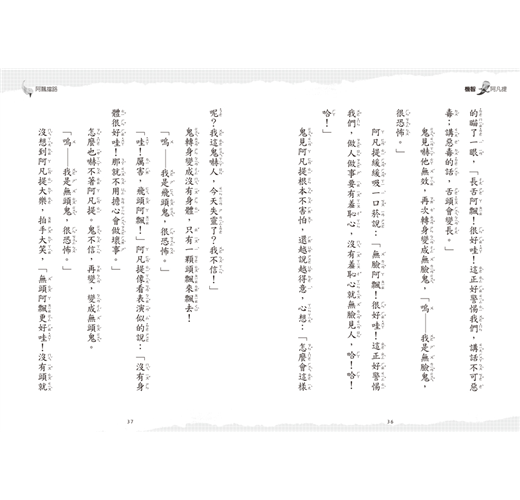 機智阿凡提
的瞄了一眼,「長舌阿飄!很好哇!這正好警惕我們,講話不可惡
毒;講惡毒的話,舌頭會變長。」
鬼見嚇他無效,再次轉身變成無臉鬼,「嗚——我是無臉鬼,
很恐怖。」
阿凡提緩緩吸一口菸說:「無臉阿飄!很好哇!這正好警惕
我們,做人做事要有羞恥心,沒有羞恥心就無臉見人,哈!哈!
哈!」
鬼見阿凡提根本不害怕,還越說越得意,心想:「怎麼會這樣
36
阿飄擋路
呢?我這鬼嚇人,今天失靈了?我不信!」
鬼轉身變成沒有身體,只有一顆頭飄來飄去!
「嗚——我是飛頭鬼,很恐怖。」
「哇!厲害,飛頭阿飄!」阿凡提像看表演似的說:「沒有身
體很好哇!那就不用擔心會做壞事。」
怎麼也嚇不著阿凡提。鬼不信,再變,變成無頭鬼。
「嗚——我是無頭鬼,很恐怖。」
沒想到阿凡提大樂,拍手大笑,「無頭阿飄更好哇!沒有頭就
37